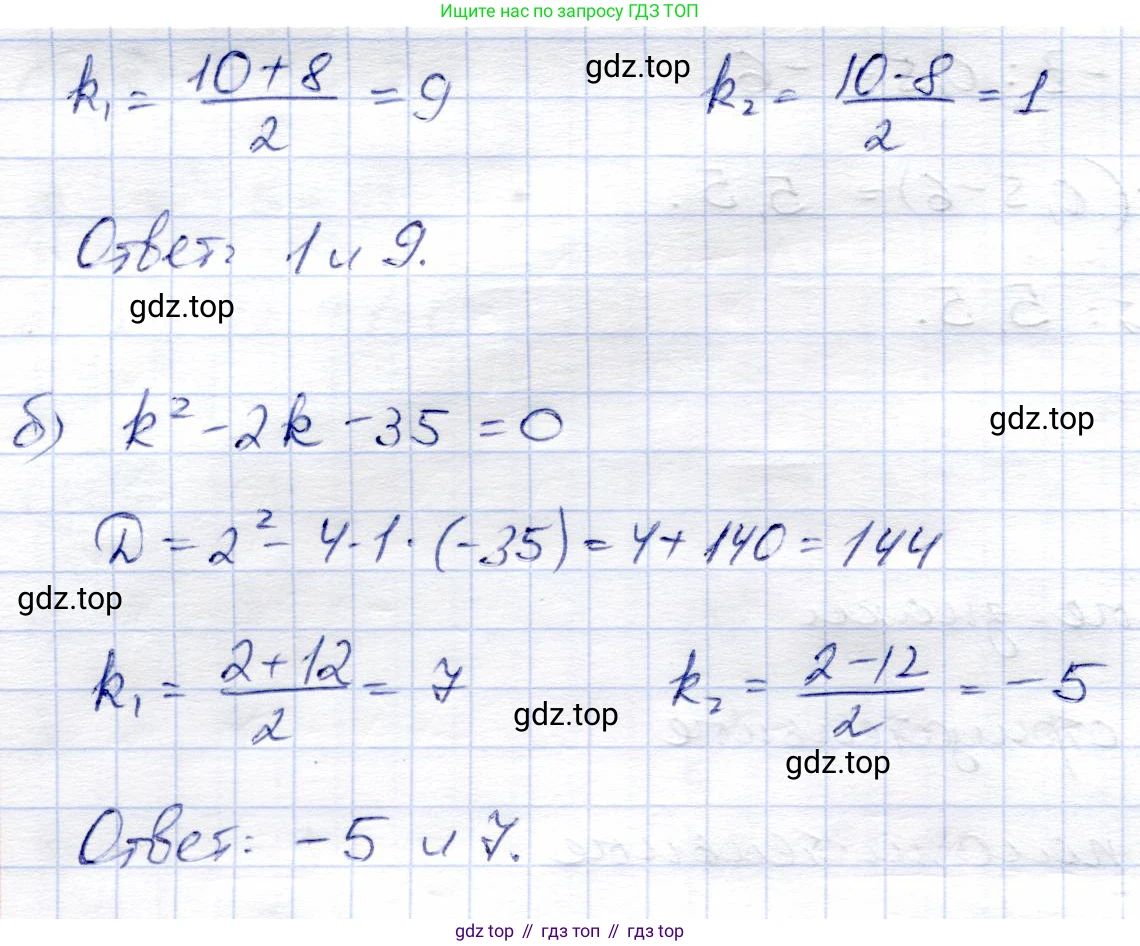 Ищите нас по запросу ГДЗ ТОП
k₁ = (10 + 8)/2 = 9 gdz.top k₂ = (10 - 8)/2 = 1
Ответ: 1 и 9.
gdz.top
б) k² - 2k - 35 = 0 gdz.top
D = 2² - 4·1·(-35) = 4 + 140 = 144
gdz.top
k₁ = (2 + 12)/2 = 7 gdz.top k₂ = (2 - 12)/2 = -5
gdz.top
Ответ: -5 и 7.
gdz.top // гдз топ // гдз top